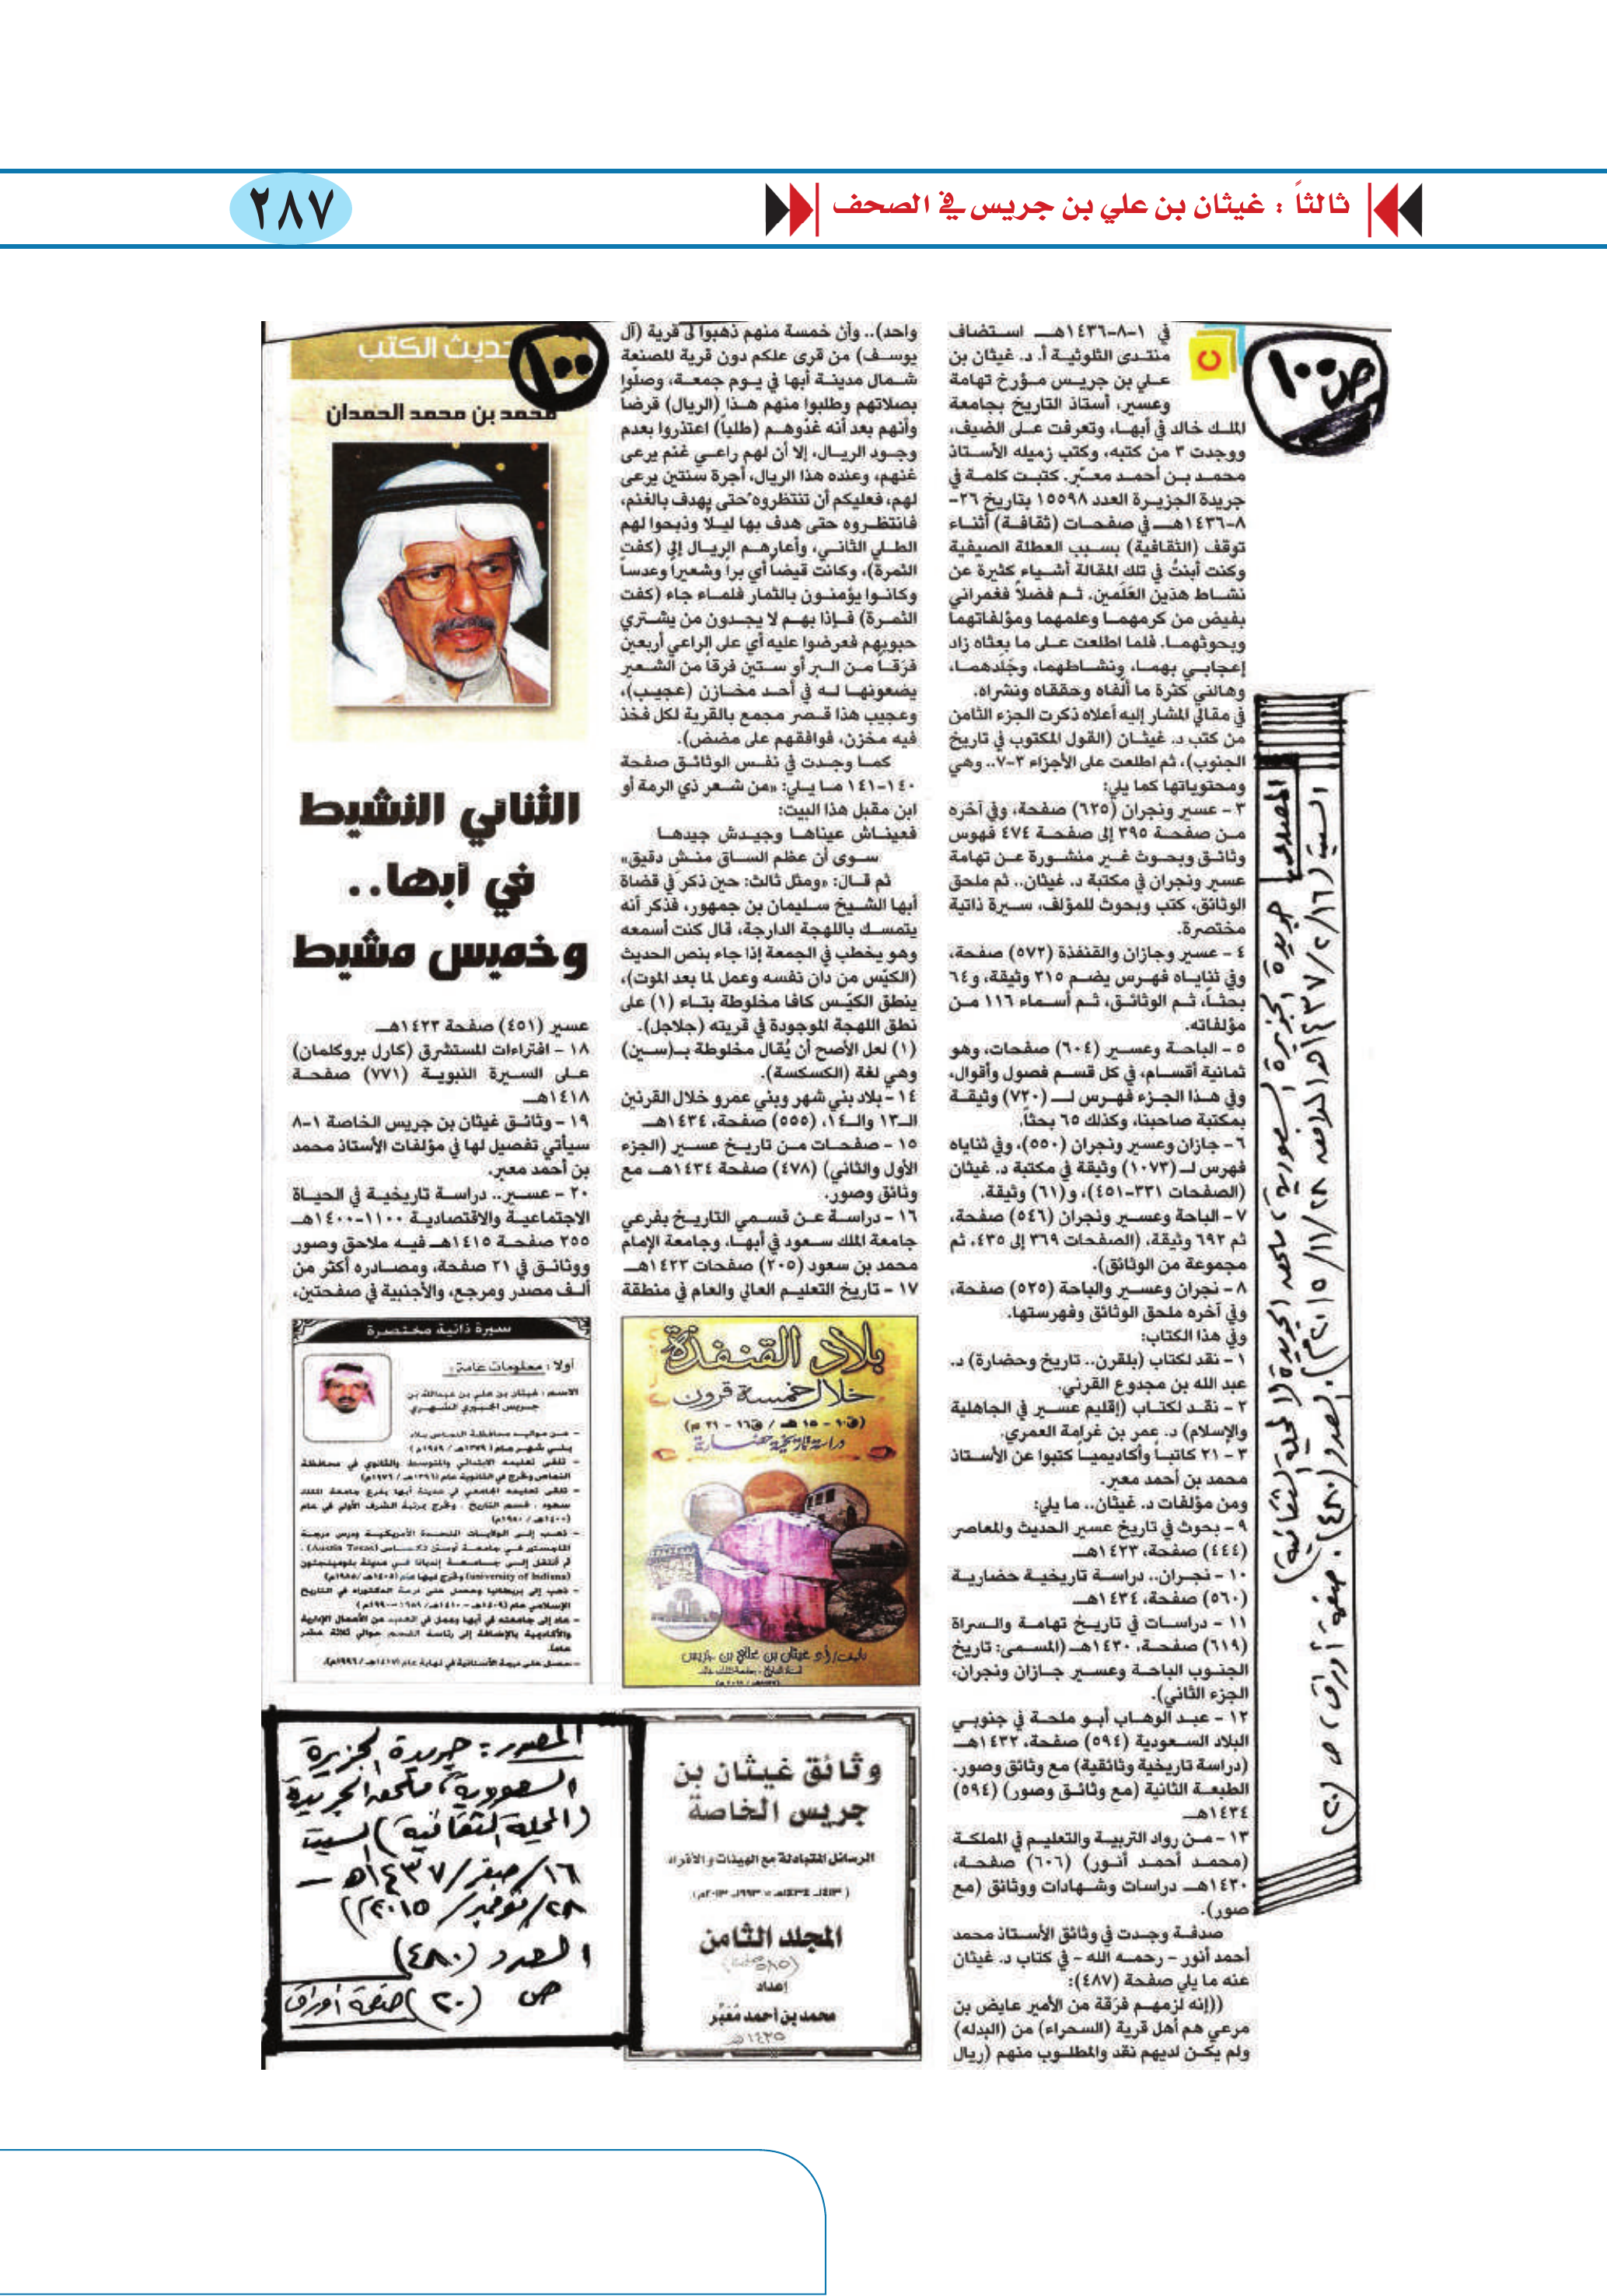 ثالثاً : غيثان بن علي بن جريس في الصحف
٢٨٧
ص ١٠٠
في ١-٨-١٤٣٦هـ استضاف
منتدى الثلوثية أ. د. غيثان بن
علي بن جريس مؤرخ تهامة
وعسير، أستاذ التاريخ بجامعة
الملك خالد في أبها، وتعرفت على الضيف،
ووجدت ٣ من كتبه، وكتب زميله الأستاذ
محمد بن أحمد معبّر. كتبت كلمة في
جريدة الجزيرة العدد ١٥٥٩٨ بتاريخ ٢٦-
٨-١٤٣٦هـ في صفحات (ثقافة) أثناء
توقف (الثقافية) بسبب العطلة الصيفية
وكنت أبنتُ في تلك المقالة أشياء كثيرة عن
نشاط هذين العَلَمين. ثم فضلاً فغمراني
بفيض من كرمهما وعلمهما ومؤلفاتهما
وبحوثهما. فلما اطلعت على ما بعثاه زاد
إعجابي بهما، ونشاطهما، وجَلَدهما،
وهالني كثرة ما ألّفاه وحققاه ونشراه.
في مقالي المشار إليه أعلاه ذكرت الجزء الثامن
من كتب د. غيثان (القول المكتوب في تاريخ
الجنوب)، ثم اطلعت على الأجزاء ٣-٧.. وهي
ومحتوياتها كما يلي:
٣ - عسير ونجران (٦٢٥) صفحة، وفي آخره
من صفحة ٣٩٥ إلى صفحة ٤٧٤ فهوس
وثائق وبحوث غير منشورة عن تهامة
عسير ونجران في مكتبة د. غيثان.. ثم ملحق
الوثائق، كتب وبحوث للمؤلف، سيرة ذاتية
مختصرة.
٤ - عسير وجازان والقنفذة (٥٧٢) صفحة،
وفي ثناياه فهرس يضم ٢١٥ وثيقة، و٦٤
بحثاً، ثم الوثائق، ثم أسماء ١١٦ من
مؤلفاته.
٥ - الباحة وعسير (٦٠٤) صفحات، وهو
ثمانية أقسام، في كل قسم فصول وأقوال،
وفي هذا الجزء فهرس لـ (٧٢٠) وثيقة
بمكتبة صاحبنا، وكذلك ٦٥ بحثاً.
٦ - جازان وعسير ونجران (٥٥٠)، وفي ثناياه
فهرس لـ (١٠٧٣) وثيقة في مكتبة د. غيثان
(الصفحات ٣٣١-٤٥١)، و(٦١) وثيقة.
٧ - الباحة وعسير ونجران (٥٤٦) صفحة،
ثم ٦٩٢ وثيقة، (الصفحات ٣٦٩ إلى ٤٣٥، ثم
مجموعة من الوثائق).
٨ - نجران وعسير والباحة (٥٢٥) صفحة،
وفي آخره ملحق الوثائق وفهرستها.
وفي هذا الكتاب:
١ - نقد لكتاب (بلقرن.. تاريخ وحضارة) د.
عبد الله بن مجدوع القرني.
٢ - نقد لكتاب (إقليم عسير في الجاهلية
والإسلام) د. عمر بن غرامة العمري.
٣ - ٢١ كاتباً وأكاديمياً كتبوا عن الأستاذ
محمد بن أحمد معبر.
ومن مؤلفات د. غيثان.. ما يلي:
٩ - بحوث في تاريخ عسير الحديث والمعاصر
(٤٤٤) صفحة، ١٤٢٣هـ
١٠ - نجران.. دراسة تاريخية حضارية
(٥٦٠) صفحة، ١٤٣٤هـ
١١ - دراسات في تاريخ تهامة والسراة
(٦١٩) صفحة، ١٤٣٠هـ (المسمى: تاريخ
الجنوب الباحة وعسير جازان ونجران،
الجزء الثاني).
١٢ - عبد الوهاب أبو ملحة في جنوبي
البلاد السعودية (٥٩٤) صفحة، ١٤٣٢هـ
(دراسة تاريخية وثائقية) مع وثائق وصور.
الطبعة الثانية (مع وثائق وصور) (٥٩٤)
١٤٣٤هـ
١٣ - من رواد التربية والتعليم في المملكة
(محمد أحمد أنور) (٦٠٦) صفحة،
١٤٣٠هـ دراسات وشهادات ووثائق (مع
صور).
صدفة وجدت في وثائق الأستاذ محمد
أحمد أنور - رحمه الله - في كتاب د. غيثان
عنه ما يلي صفحة (٤٨٧):
((إنه لزمهم فرّقة من الأمير عايض بن
مرعي هم أهل قرية (السحراء) من (البدله)
ولم يكن لديهم نقد والمطلوب منهم (ريال
واحد).. وأن خمسة منهم ذهبوا لى قرية (آل
يوسف) من قرى علكم دون قرية للصنعة
شمال مدينة أبها في يوم جمعة، وصلّوا
بصلاتهم وطلبوا منهم هذا (الريال) قرضا
وأنهم بعد أنه غدّوهم (طلياً) اعتذروا بعدم
وجود الريال، إلا أن لهم راعي غنم يرعى
غنهم، وعنده هذا الريال، أجرة سنتين يرعى
لهم، فعليكم أن تنتظروه حتى يهدف بالغنم،
فانتظروه حتى هدف بها ليلا وذبحوا لهم
الطلي الثاني، وأعارهم الريال إلى (كفت
الثمرة)، وكانت قيضاً أي براً وشعيراً وعدساً
وكانوا يؤمنون بالثمار فلماء جاء (كفت
الثمرة) فإذا بهم لا يجدون من يشتري
حبوبهم فعرضوا عليه أي على الراعي أربعين
فرَقاً من البر أو ستين فرقاً من الشعير
يضعونها له في أحد مخازن (عجيب)،
وعجيب هذا قصر مجمع بالقرية لكل فخذ
فيه مخزن، فوافقهم على مضض).
كما وجدت في نفس الوثائق صفحة
١٤٠-١٤١ ما يلي: «من شعر ذي الرمة أو
ابن مقبل هذا البيت:
فعيناش عيناها وجيدش جيدها
سوى أن عظم الساق منش دقيق»
ثم قال: «ومثل ثالث: حين ذكر في قضاة
أبها الشيخ سليمان بن جمهور، فذكر أنه
يتمسك باللهجة الدارجة، قال كنت أسمعه
وهو يخطب في الجمعة إذا جاء بنص الحديث
(الكيّس من دان نفسه وعمل لما بعد الموت)،
ينطق الكيّس كافا مخلوطة بتاء (١) على
نطق اللهجة الموجودة في قريته (جلاجل).
(١) لعل الأصح أن يُقال مخلوطة بـ(سين)
وهي لغة (الكسكسة).
١٤ - بلاد بني شهر وبني عمرو خلال القرنين
الـ١٣ والـ١٤، (٥٥٥) صفحة، ١٤٣٤هـ
١٥ - صفحات من تاريخ عسير (الجزء
الأول والثاني) (٤٧٨) صفحة ١٤٣٤هـ مع
وثائق وصور.
١٦ - دراسة عن قسمي التاريخ بفرعي
جامعة الملك سعود في أبها، وجامعة الإمام
محمد بن سعود (٢٠٥) صفحات ١٤٢٣هـ
١٧ - تاريخ التعليم العالي والعام في منطقة
حديث الكتب
١٠٠
محمد بن محمد الحمدان
الثنائي النشيط
في أبها..
وخميس مشيط
عسير (٤٥١) صفحة ١٤٢٣هـ
١٨ - افتراءات المستشرق (كارل بروكلمان)
على السيرة النبوية (٧٧١) صفحة
١٤١٨هـ
١٩ - وثائق غيثان بن جريس الخاصة ١-٨
سيأتي تفصيل لها في مؤلفات الأستاذ محمد
بن أحمد معبر.
٢٠ - عسير.. دراسة تاريخية في الحياة
الاجتماعية والاقتصادية ١١٠٠-١٤٠٠هـ
٢٥٥ صفحة ١٤١٥هـ فيه ملاحق وصور
ووثائق في ٢١ صفحة، ومصادره أكثر من
ألف مصدر ومرجع، والأجنبية في صفحتين،
سيرة ذاتية مختصرة
أولا : معلومات عامة :
الاسم : غيثان بن علي بن عبدالله بن
جريس الجبيري الشهري
- من مواليد محافظة النماص ببلاد
بني شهر عام (١٣٧٩هـ / ١٩٥٩م)
- تلقى تعليمه الابتدائي والمتوسط والثانوي في محافظة
النماص وتخرج في الثانوية عام (١٣٩٦هـ / ١٩٧٦م)
- تلقى تعليمه الجامعي في مدينة أبها بفرع جامعة الملك
سعود ، قسم التاريخ ، وتخرج بمرتبة الشرف الأولى في عام
(١٤٠٠هـ / ١٩٨٠م)
- ذهب إلى الولايات المتحدة الأمريكية ودرس مرحلة
الماجستير في جامعة أوستن تكساس (Austin Texas) ،
ثم انتقل إلى جامعة إنديانا في مدينة بلومينجتون
(university of Indiana) وتخرج فيها عام (١٤٠٥هـ / ١٩٨٥م)
- ذهب إلى بريطانيا وحصل على درجة الدكتوراه في التاريخ
الإسلامي عام (١٤٠٩هـ - ١٤١٠هـ / ١٩٨٩ - ١٩٩٠م)
- عاد إلى جامعته في أبها وعمل في العديد من الأعمال الإدارية
والأكاديمية بالإضافة إلى رئاسة القسم حوالي ثلاثة عشر
عاما.
- حصل على درجة الأستاذية في نهاية عام (١٤١٧هـ / ١٩٩٦م).
بلاد القنفذة
خلال خمسة قرون
(ق١٠ - ١٥ هـ / ق١٦ - ٢١ م)
دراسة تاريخية حضارية
تأليف / أ.د غيثان بن علي بن جريس
وثائق غيثان بن
جريس الخاصة
الرسائل المتبادلة مع الهيئات والأفراد
(١٤١٣-١٤٣٤هـ = ١٩٩٣-٢٠١٣م)
المجلد الثامن
إعداد
محمد بن أحمد مُعَبّر
١٤٣٥هـ
المصدر : جريدة الجزيرة
السعودية، ملحق الجريدة
(المجلة الثقافية) السبت
١٦/صفر/١٤٣٧هـ -
٢٨/نوفمبر/٢٠١٥م)
العدد (٤٨٠)
ص (٢٠) صفحة أوراق
المصدر: جريدة الجزيرة السعودية، ملحق الجريدة (المجلة الثقافية)
السبت (١٦/٢/١٤٣٧هـ الموافق ٢٨/١١/٢٠١٥م). العدد (٤٨٠). صفحة أوراق، ص (٢٠)